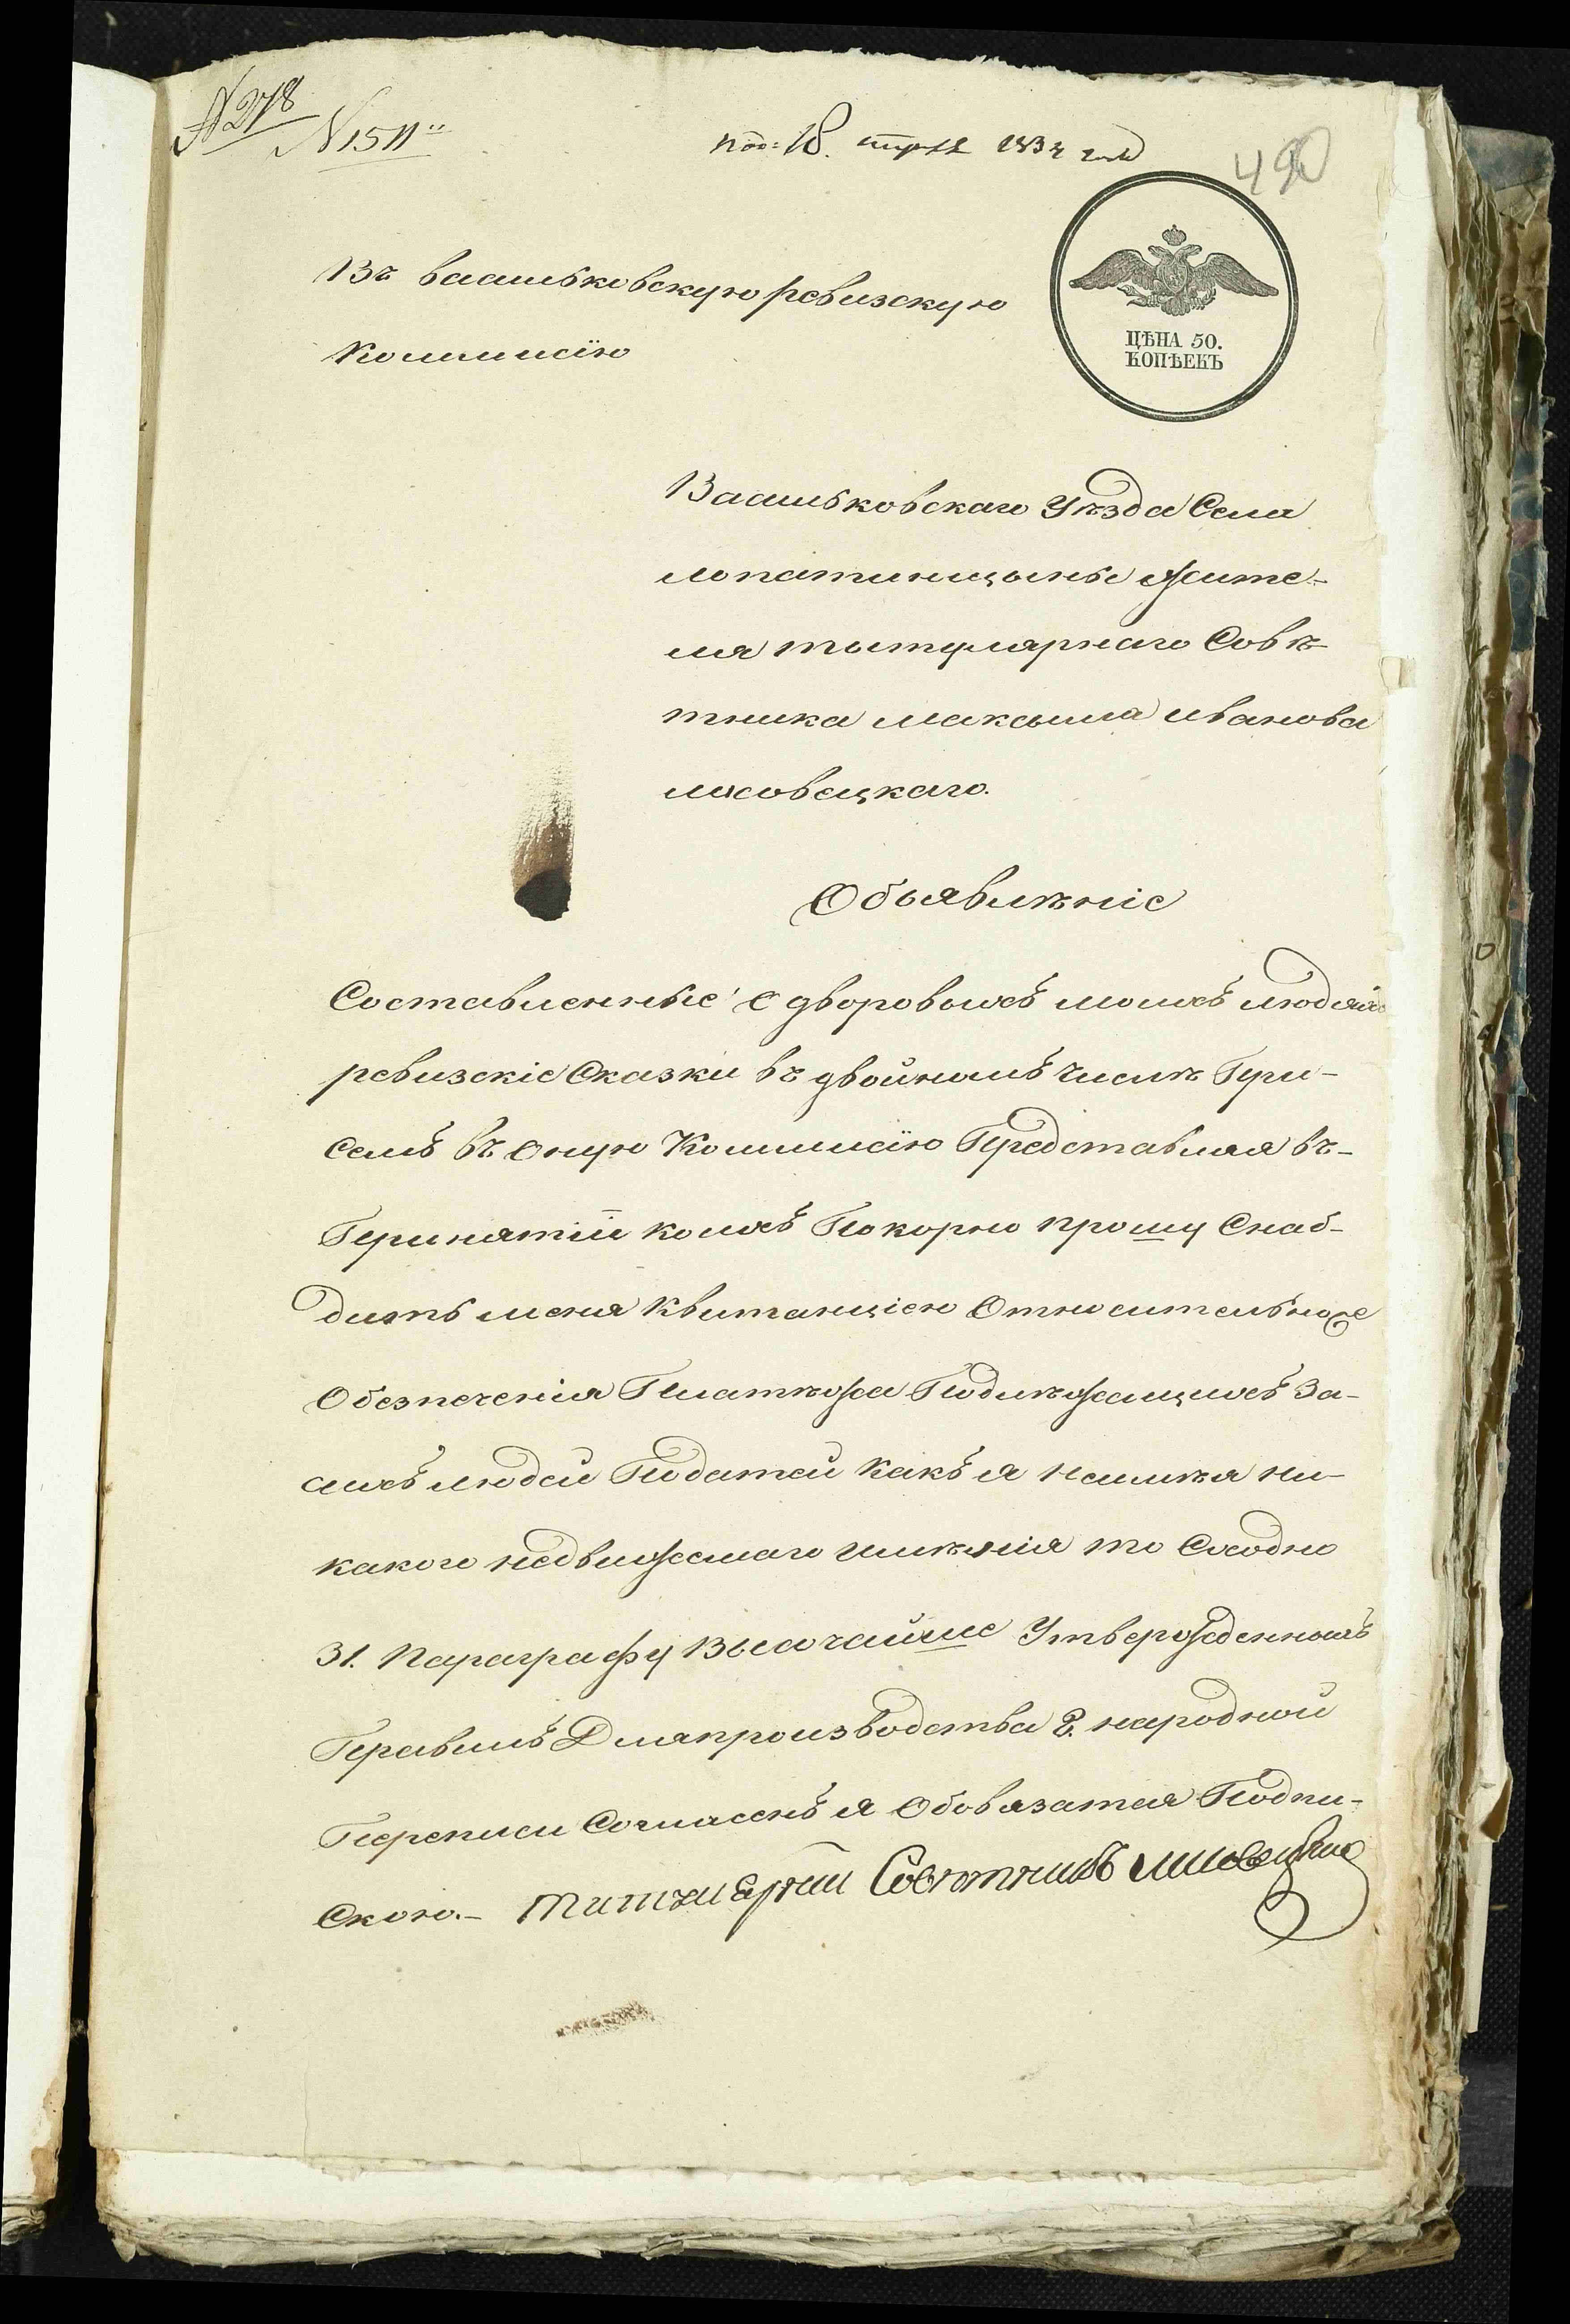 № 278
№ 1511
под: 18. апреля 1834 года
490
Въ васильковскую ревизскую
Коммисїю
ЦѢНА 50.
КОПѢЕКЪ
Васильковскаго Уѣзда Села
лопатинщины жите-
ля титулярнаго Совѣ
тника максима иванова
лисовецкаго.
Объявлѣніе
Составленные о дворовыхъ моихъ людяхъ
ревизскіе Сказки въ двойномъ числѣ При-
семъ въ оную Коммисїю Представляя въ-
Принятіи коихъ Покорно прошу Снаб-
дить меня квитанціею Относительноже
Обезпеченія Платѣжа Подлѣжащихъ За-
сихъ людей Податей какъ я неимѣя ни-
какого недвижемаго имѣнія то Сходно
31. Параграфу Высочайше Утвержденныхъ
Правилъ Для производства 8. народной
Переписи Согласенъ я Обовязатся Подпи-
Скою.- титулярный Советникъ лисовецкий